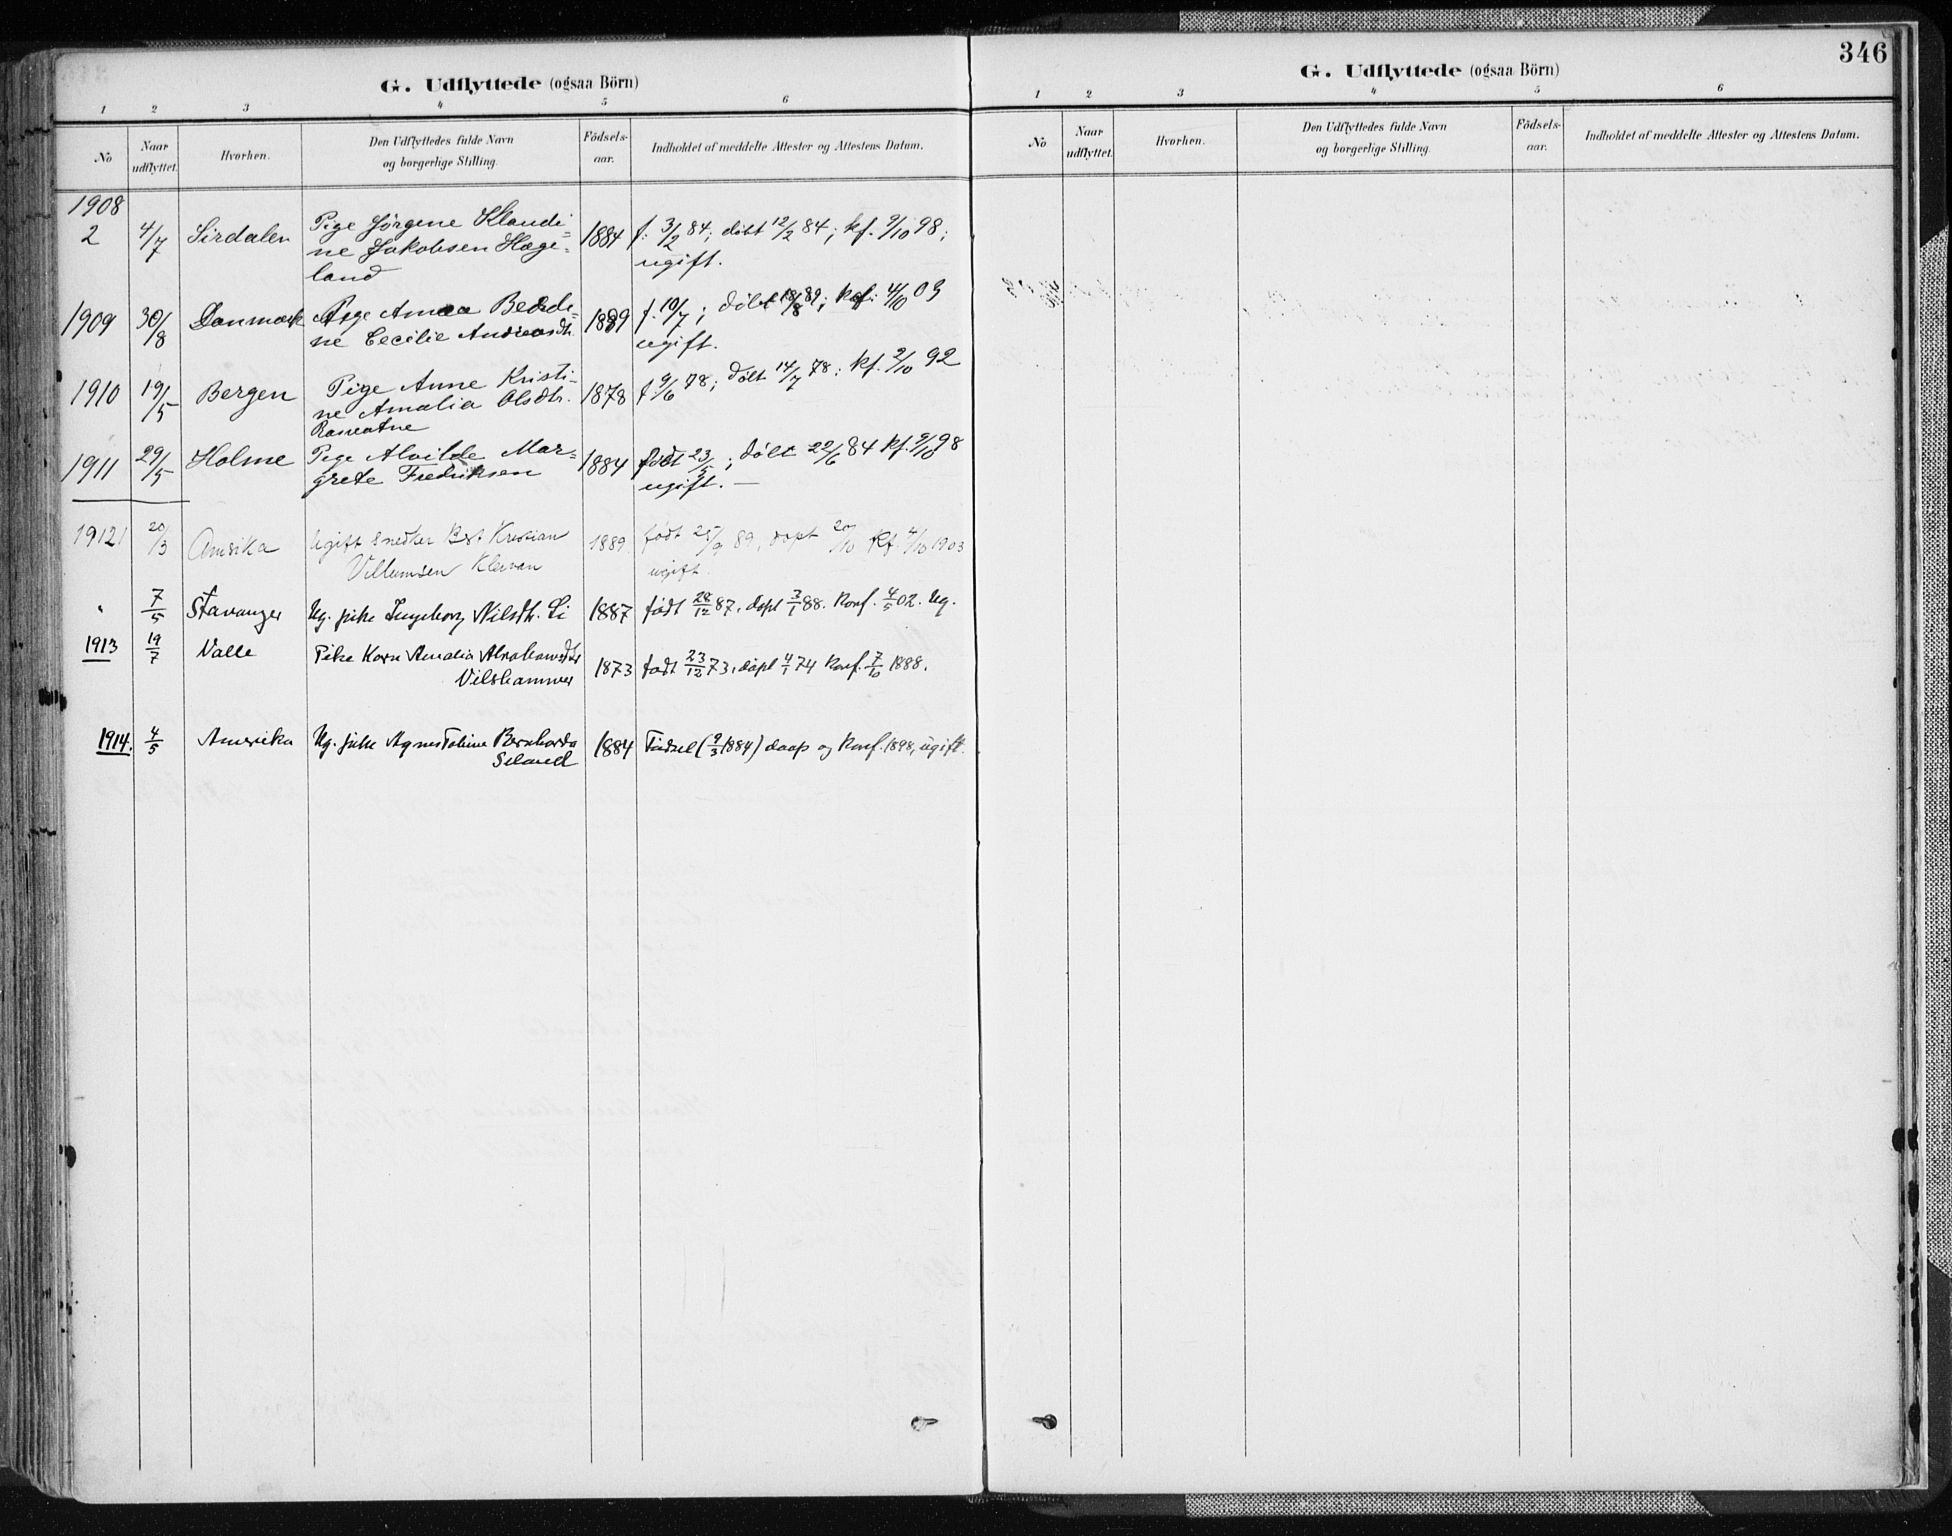 G. Udflyttede (ogsaa Börn)
1 2 3 4 5 6
No Naar udflyttet. Hvorhen. Den Udflyttedes fulde Navn og borgerlige Stilling. Födsels-aar. Indholdet af meddelte Attester og Attestens Datum.
1908
2 4/7 Sirdalen Pige Jørgene Klaudi- 1884 f. 3/2 84; døbt 12/2 84; kf. 9/10 98;
ne Jakobsen Hæge- ugift.
land
1909 30/8 Danmark Pige Anna Berdi- 1889 f. 10/7; døbt 18/8 89; kof: 4/10 03
ne Cecilie Andreasdt. ugift.
1910 19/5 Bergen Pige Anne Kristi- 1878 f. 9/6 78; døbt 14/7 78; kf. 2/10 92
ne Amalia Olsdtr.
1911 29/5 Holme Pige Alvilde Mar- 1884 født 23/5; døbt 22/6 84 kf. 9/10 98
grete Fredriksen ugift. —
1912 20/3 Amerika Ugift snedker Kristian 1889 født 25/9 89, døpt 20/10 Kf. 4/10 1903
Villumsen Klevan ugift.
" 7/5 Stavanger Ug. pike Ingeborg Nilsdtr. Li 1887 født 28/12 87, døpt 3/1 88. Konf. 4/5 02. Ug.
1913 19/7 Valle Pike Karn Amalia Abrahamsdtr 1873 født 23/12 73, døpt 4/1 74 Konf. 7/10 1888.
Vilshammer
1914. 4/5 Amerika Ug. pike Agnes Tobine Bernharda 1884 Fødsel (9/3 1884) daap og Konf. 1898, ugift.
Seland
346
G. Udflyttede (ogsaa Börn)
1 2 3 4 5 6
No Naar udflyttet. Hvorhen. Den Udflyttedes fulde Navn og borgerlige Stilling. Födsels-aar. Indholdet af meddelte Attester og Attestens Datum.